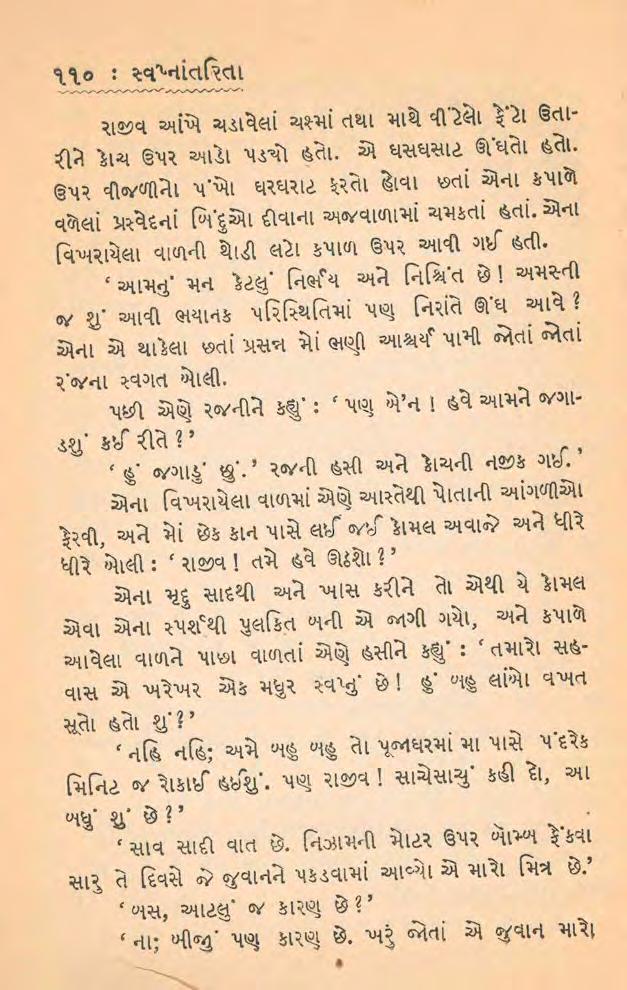 ૧૧૦ : સ્વપ્નાંતરિતા
રાજીવ આંખે ચડાવેલાં ચશ્માં તથા માથે વીંટેલો ફેંટો ઉતા-
રીને કોચ ઉપર આડો પડ્યો હતો. એ ઘસઘસાટ ઊંઘતો હતો.
ઉપર વીજળીનો પંખો ઘરઘરાટ ફરતો હોવા છતાં એના કપાળે
વળેલાં પ્રસ્વેદનાં બિંદુઓ દીવાના અજવાળામાં ચમકતાં હતાં. એના
વિખરાયેલા વાળની થોડી લટો કપાળ ઉપર આવી ગઈ હતી.
‘ આમનું મન કેટલું નિર્ભય અને નિશ્ચિંત છે ! અમસ્તી
જ શું આવી ભયાનક પરિસ્થિતિમાં પણ નિરાંતે ઊંઘ આવે ?
એના એ થાકેલા છતાં પ્રસન્ન મોં ભણી આશ્ચર્ય પામી જોતાં જોતાં
રંજના સ્વગત બોલી.
પછી એણે રજનીને કહ્યું : ‘ પણ બે’ન ! હવે આમને જગા-
ડશું કઈ રીતે ? ’
‘ હું જગાડું છું. ’ રજની હસી અને કોચની નજીક ગઈ. ’
એના વિખરાયેલા વાળમાં એણે આસ્તેથી પોતાની આંગળીઓ
ફેરવી, અને મોં છેક કાન પાસે લઈ જઈ કોમલ અવાજે અને ધીરે
ધીરે બોલી : ‘ રાજીવ ! તમે હવે ઊઠશો ? ’
એના મૃદુ સાદથી અને ખાસ કરીને તો એથી યે કોમલ
એવા એના સ્પર્શથી પુલકિત બની એ જાગી ગયો, અને કપાળે
આવેલા વાળને પાછા વાળતાં એણે હસીને કહ્યું : ‘ તમારો સહ-
વાસ એ ખરેખર એક મધુર સ્વપ્નું છે ! હું બહુ લાંબો વખત
સૂતો હતો શું ? ’
‘ નહિ નહિ; અમે બહુ બહુ તો પૂજાઘરમાં મા પાસે પંદરેક
મિનિટ જ રોકાઈ હઈશું. પણ રાજીવ ! સાચેસાચું કહી દો, આ
બધું શું છે ? ’
‘ સાવ સાદી વાત છે. નિઝામની મોટર ઉપર બૉમ્બ ફેંકવા
સારુ તે દિવસે જે જુવાનને પકડવામાં આવ્યો એ મારો મિત્ર છે. ’
‘ બસ, આટલું જ કારણ છે ? ’
‘ ના; બીજું પણ કારણ છે. ખરું જોતાં એ જુવાન મારો